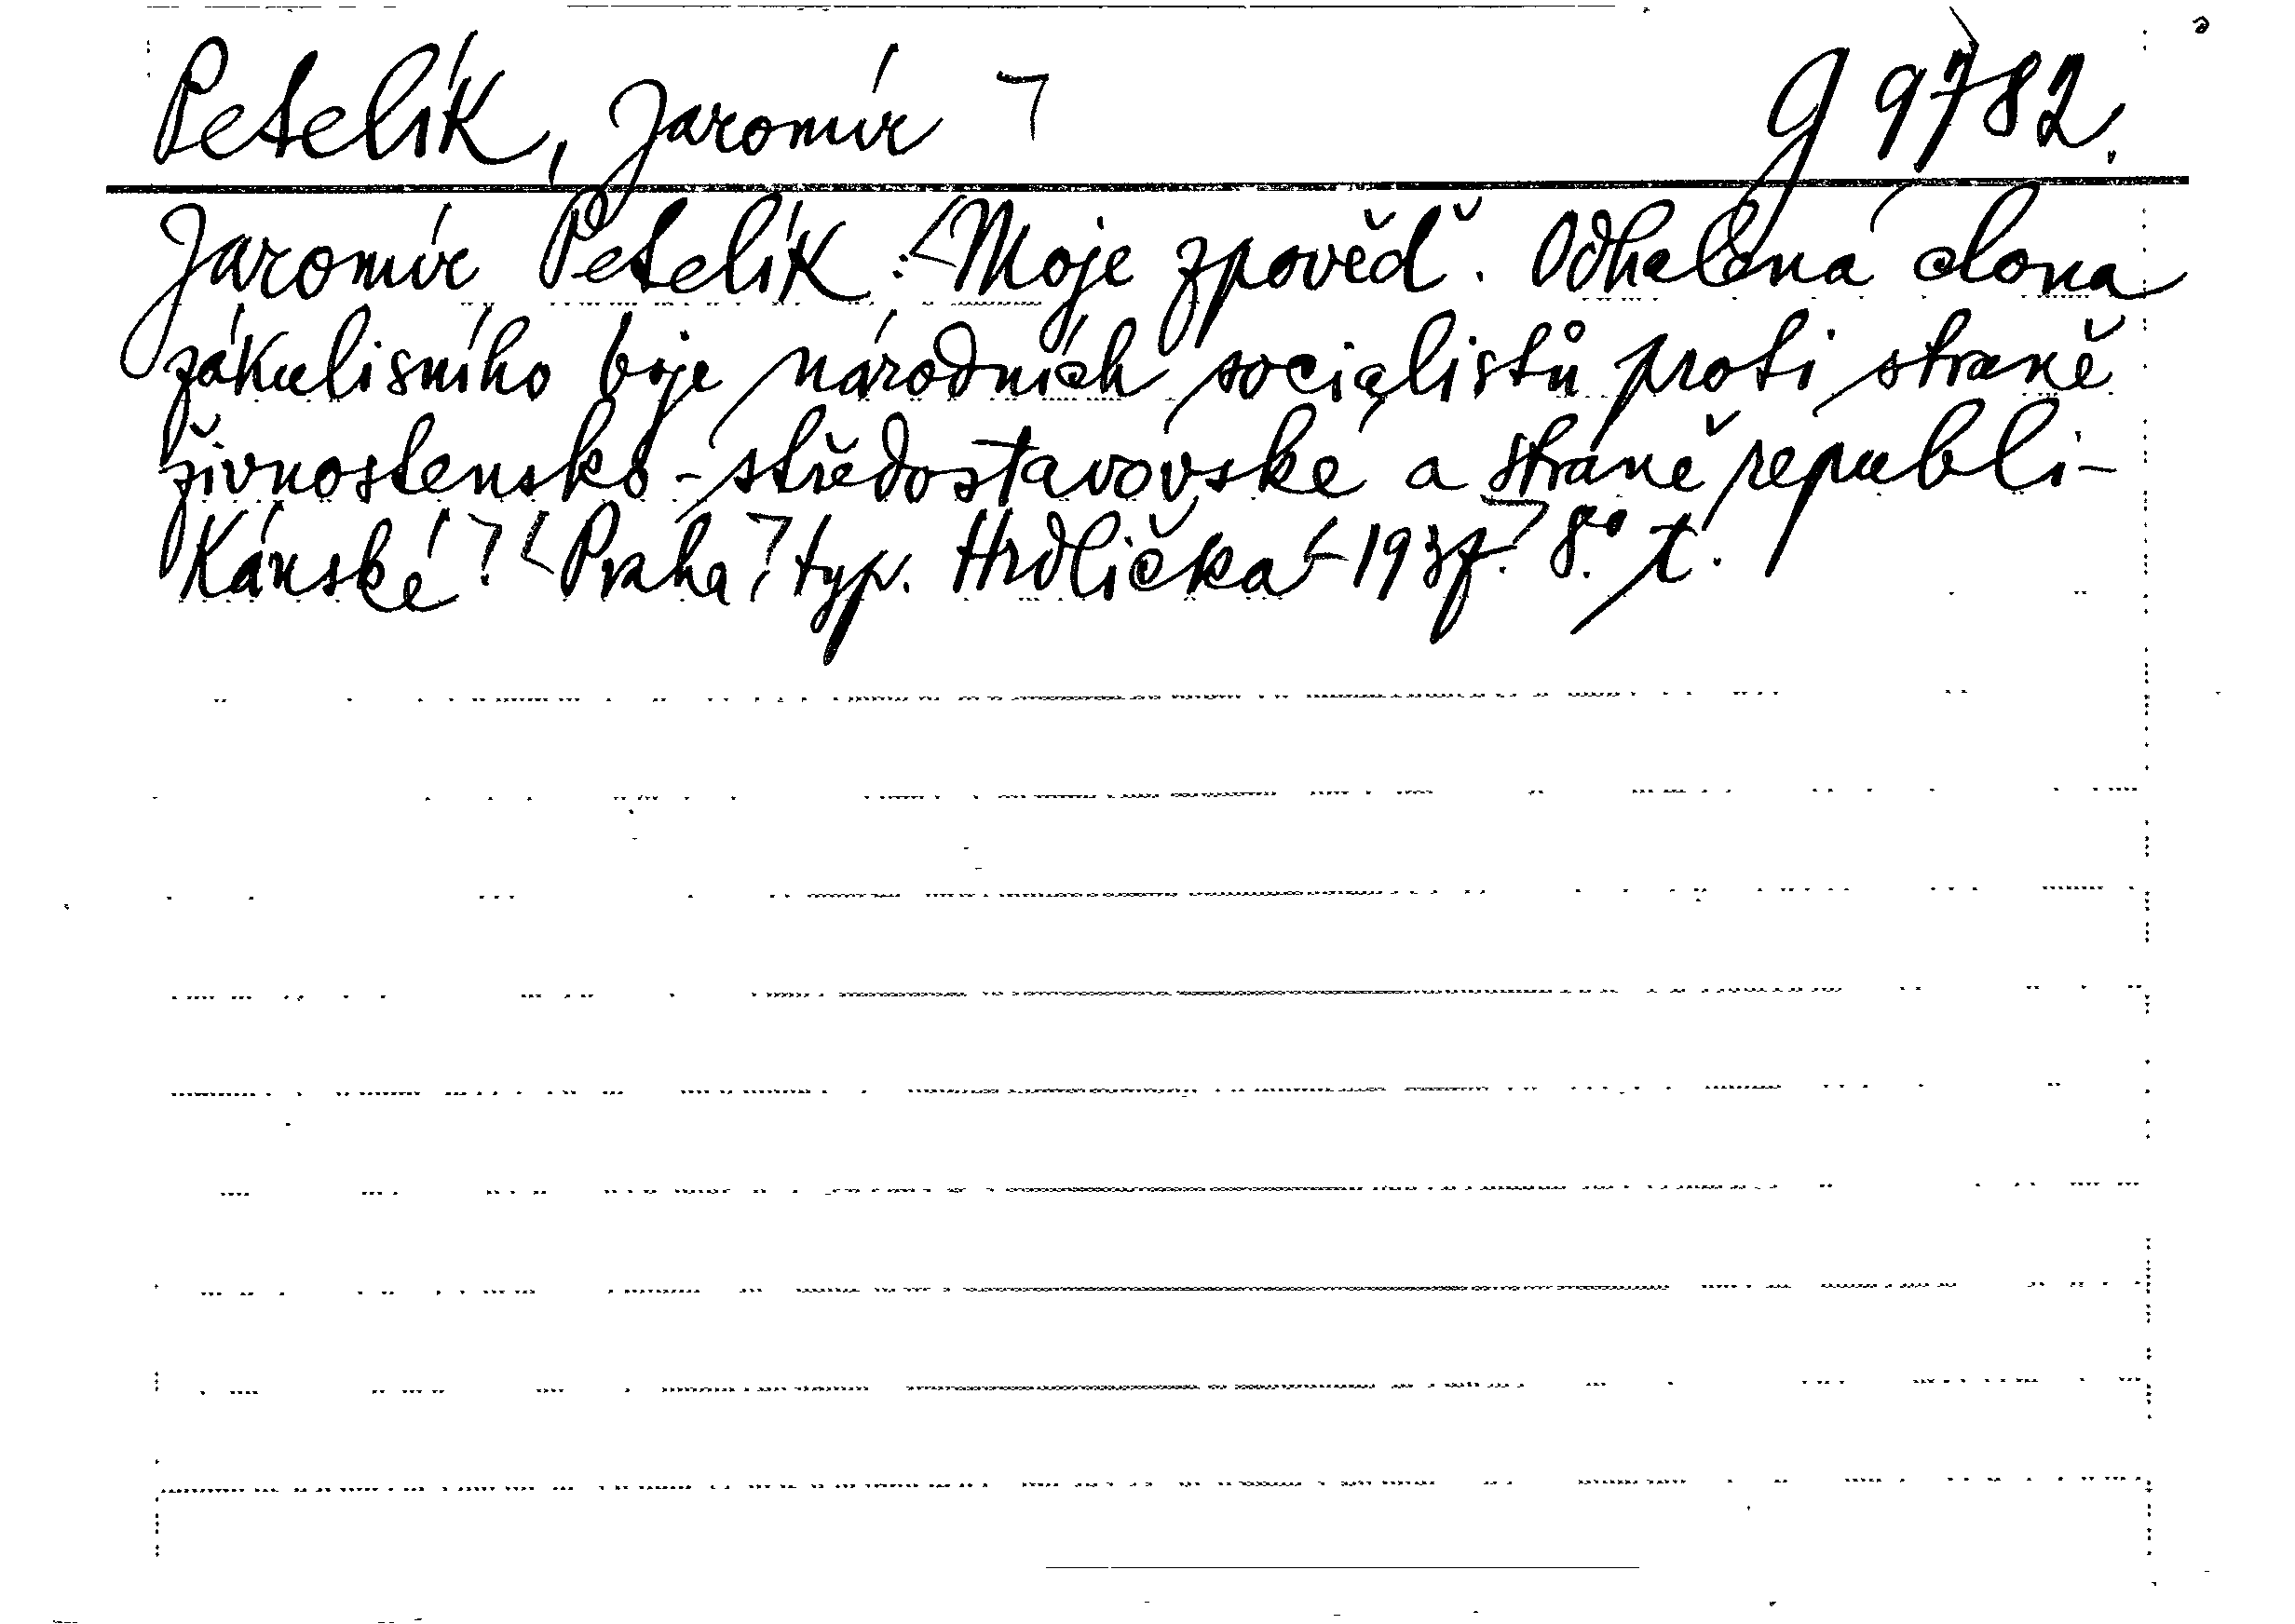 Petelík, Jaromír ㄱ g 9782.
Jaromír Petelík: <Moje zpověď. Odhalená clona
zákulisního boje národních socialistů proti straně
živnostensko-středostavovské a straně republi-
kánské ㄱ. <Praha ㄱ, typ. Hrdlička - 1937. 8.° t.